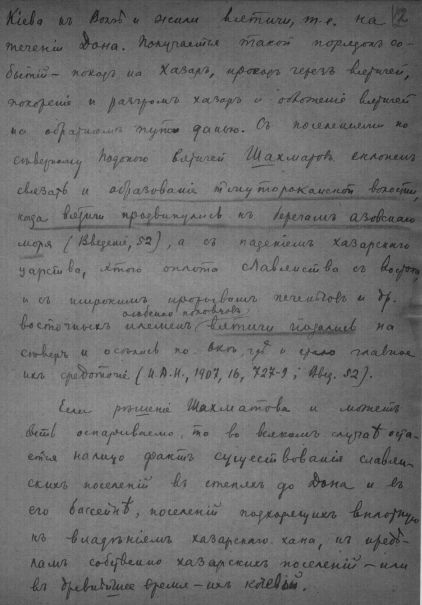 2
Кіева къ Волгѣ и жили вятичи, т.е. на
теченіи Дона. Получается такой порядокъ со-
бытій – походъ на Хазаръ, проходъ черезъ вятичей,
покореніе и разгромъ хазаръ и обложеніе вятичей
на обратномъ пути данью. Съ поселеніями по
Подонью вятичей Шахматовъ склоненъ
связать и образованіе тмутороканской волости,
когда вятичи продвинулись къ берегамъ азовскаго
моря (Введеніе, 52), а съ паденіемъ хазарскаго
царства, этого оплота славянства съ востока,
и съ широкимъ прорывомъ печенѣговъ и др.
особенно половцевъ
восточныхъ племенъ вятичи подались на
сѣверъ и осѣлись по Окѣ, гдѣ и стало главное
ихъ средоточіе (И.А.Н., 1907, 16, 727-9; Введ. 52).
Если рѣшеніе Шахматова и можетъ
быть оспариваемо, то во всякомъ случаѣ оста-
ется налицо фактъ существованія славян-
скихъ поселеній въ степяхъ до Дона и въ
его бассейнѣ, поселеній подходящихъ вплотную
къ владѣніямъ хазарскаго хана, къ предѣ-
ламъ собственно хазарскихъ поселеній – или
въ древнѣйшее время – ихъ кочевій.